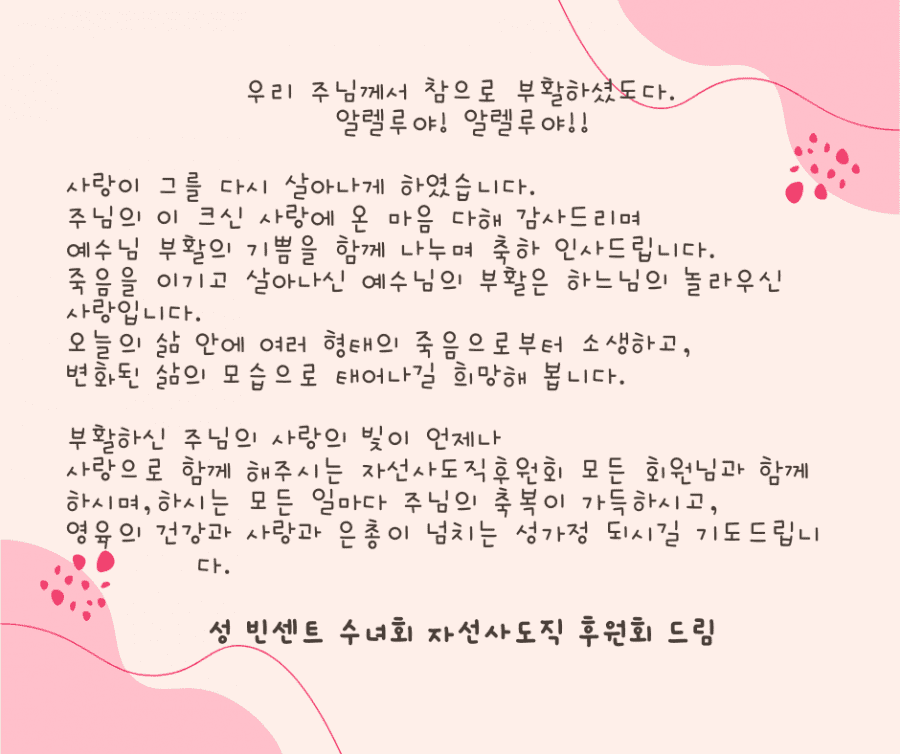 우리 주님께서 참으로 부활하셨도다.
알렐루야! 알렐루야!!
사랑이 그를 다시 살아나게 하였습니다.
주님의 이 크신 사랑에 온 마음 다해 감사드리며
예수님 부활의 기쁨을 함께 나누며 축하 인사드립니다.
죽음을 이기고 살아나신 예수님의 부활은 하느님의 놀라우신
사랑입니다.
오늘의 삶 안에 여러 형태의 죽음으로부터 소생하고,
변화된 삶의 모습으로 태어나길 희망해 봅니다.
부활하신 주님의 사랑의 빛이 언제나
사랑으로 함께 해주시는 자선사도직후원회 모든 회원님과 함께
하시며,하시는 모든 일마다 주님의 축복이 가득하시고,
영육의 건강과 사랑과 은총이 넘치는 성가정 되시길 기도드립니
다.
성 빈센트 수녀회 자선사도직 후원회 드림